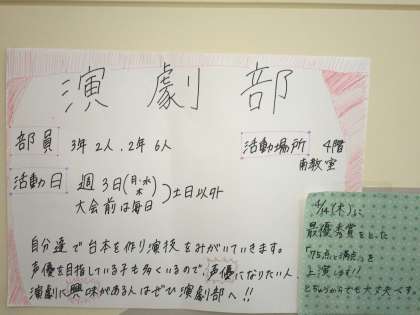 演劇部
部員 3年2人、2年6人
活動場所 4階
南教室
活動日 週3日(月・水・木)土日以外
大会前は毎日
自分達で台本を作り演技をみがいていきます。
声優を目指している子も多くいるので、声優になりたい人、
演劇に興味がある人はぜひ演劇部へ!!
4/14(木)に
最優秀賞をとった
を
上演します!!
とちゅうからでも大丈夫です。